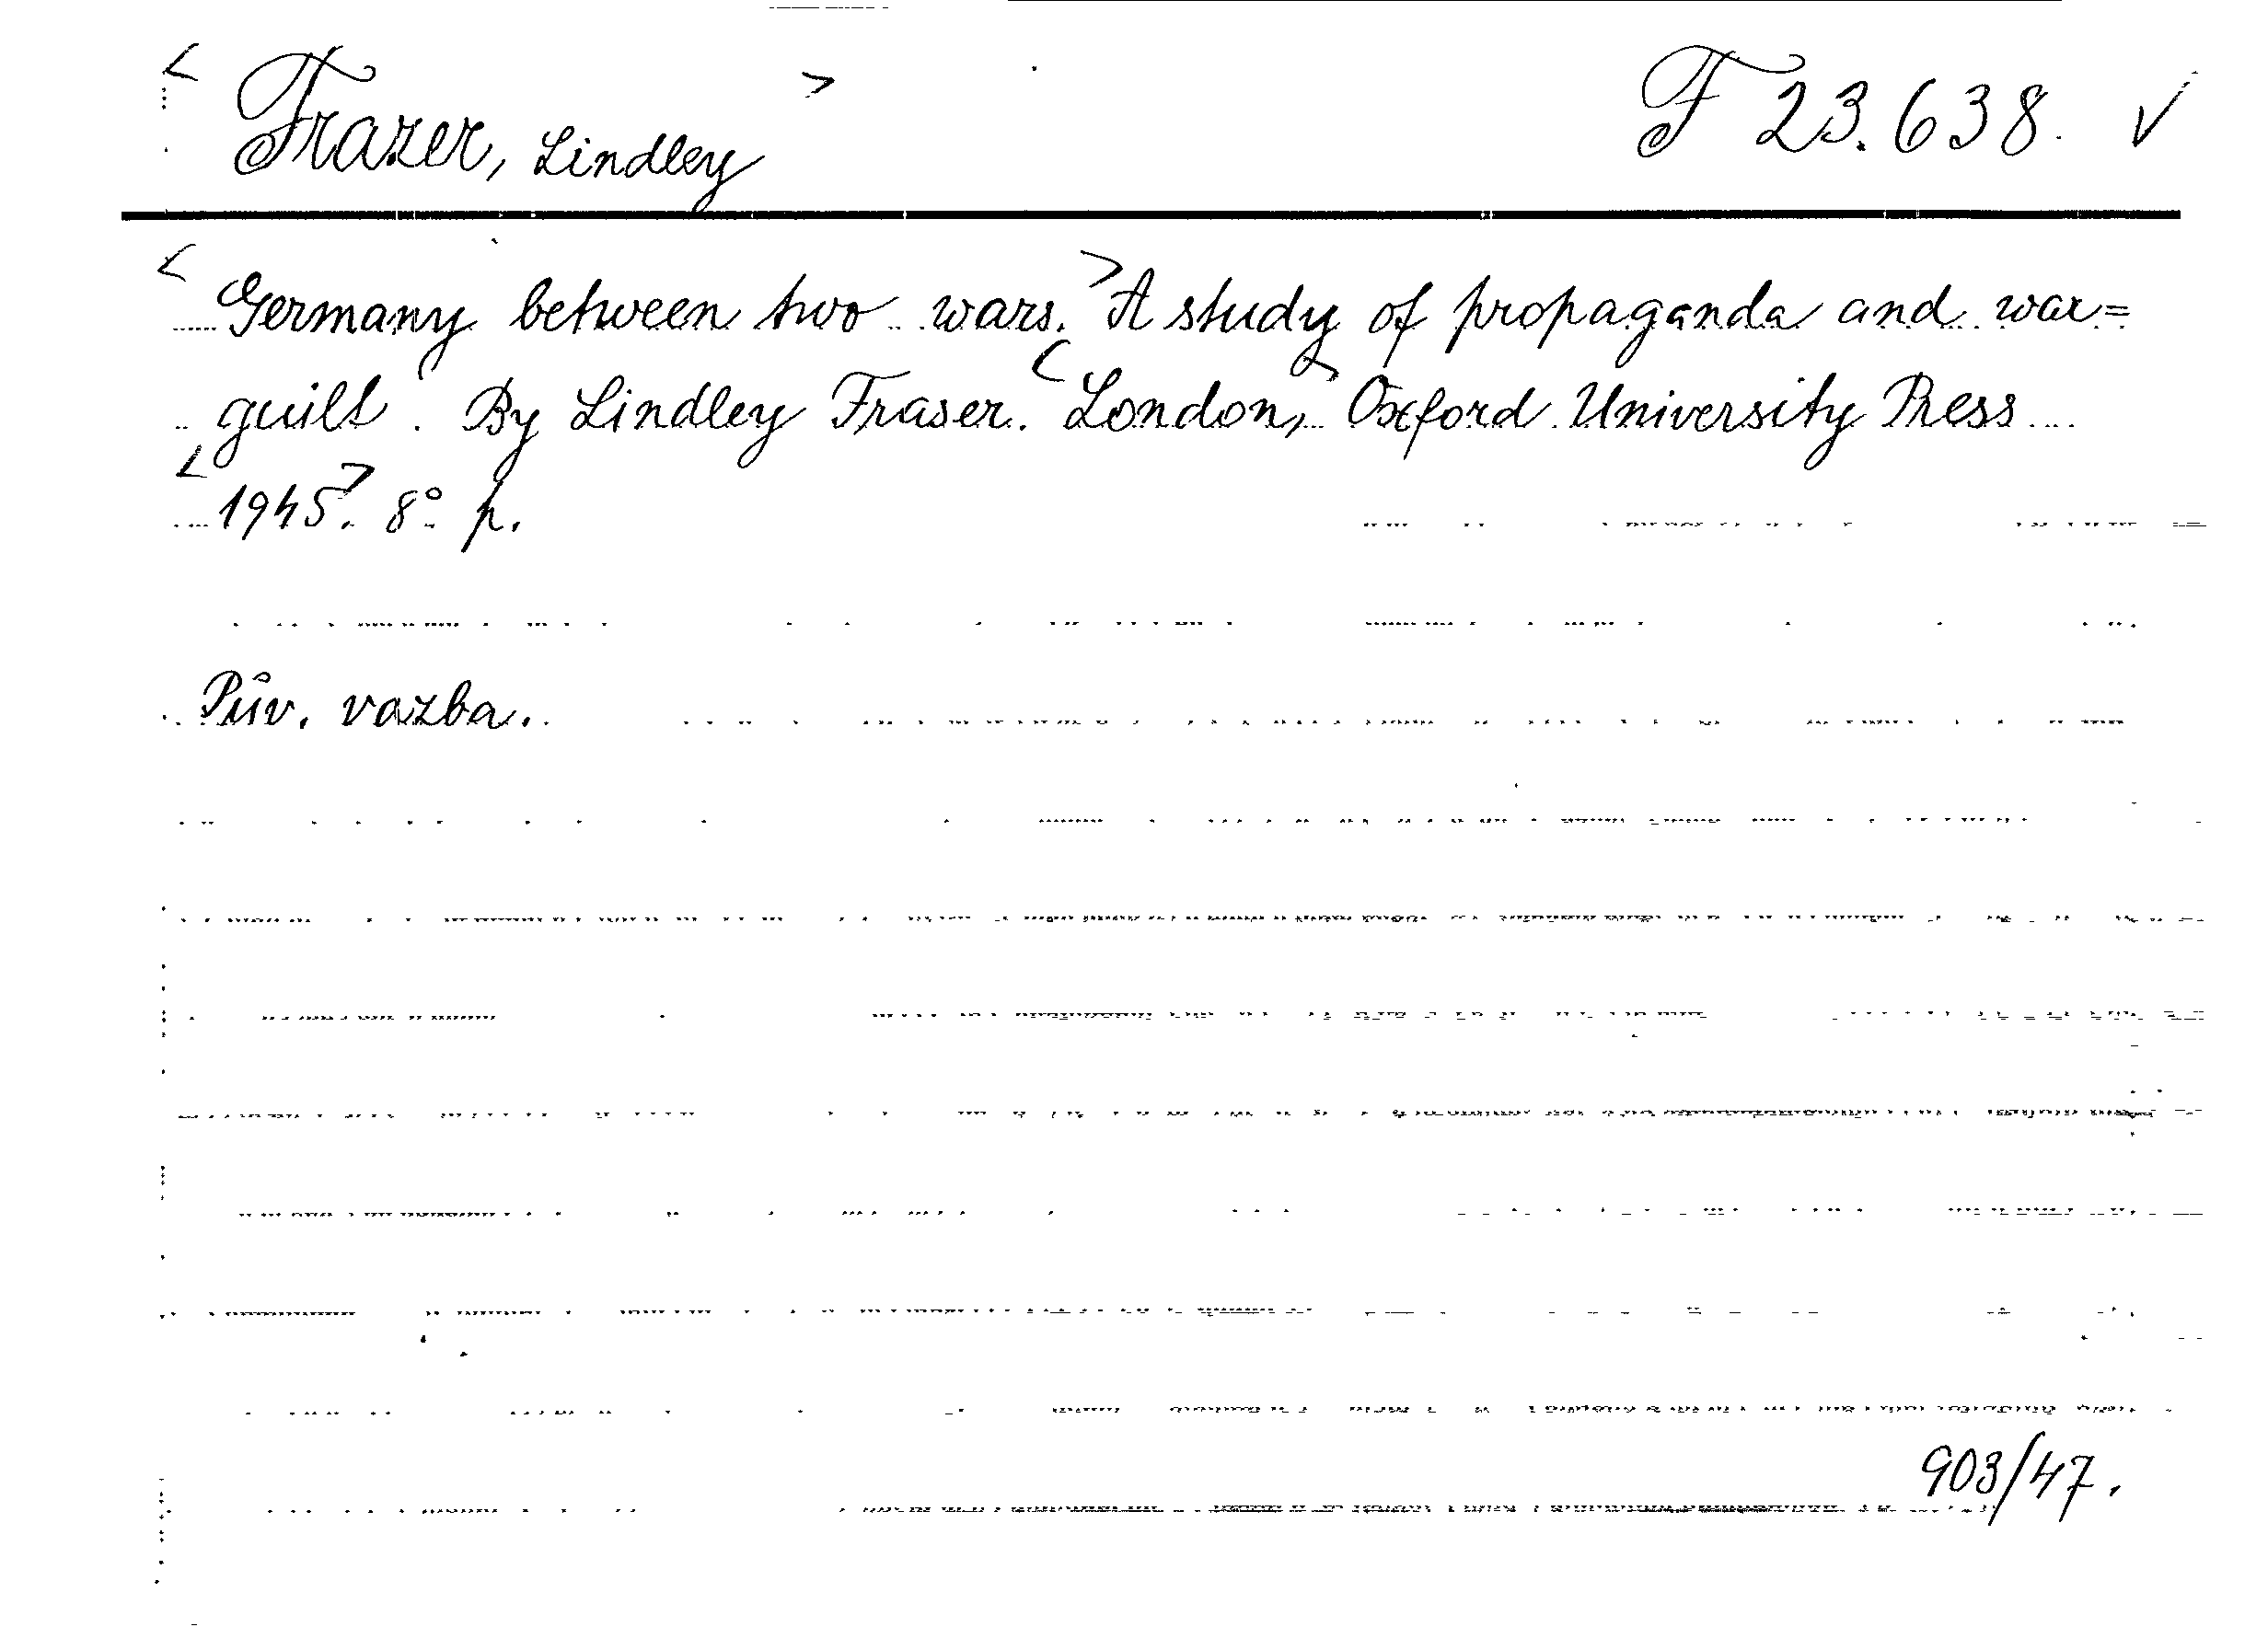 < Frazer, Lindley > F 23.638. √
< Germany between two wars. > A study of propaganda and war=
guilt. By Lindley Fraser. < London, > Oxford University Press
< 1945. > 8° p.
Pův. vazba.
903/47.